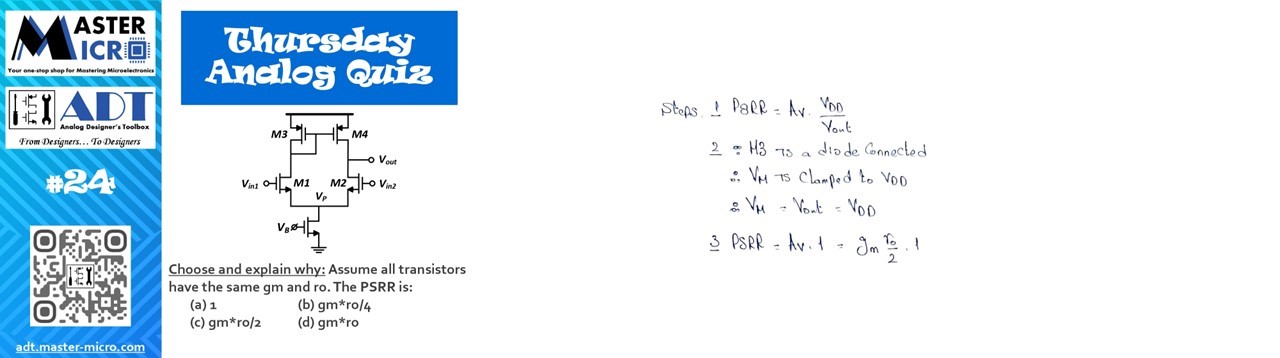 MASTER
MICRO
Your one-stop shop for Mastering Microelectronics
ADT
Analog Designer's Toolbox
From Designers... To Designers
#24
adt.master-micro.com
Thursday
Analog Quiz
M3
M4
Vout
Vin1
M1
M2
Vin2
VP
VB
Choose and explain why: Assume all transistors
have the same gm and ro. The PSRR is:
(a) 1
(b) gm*ro/4
(c) gm*ro/2
(d) gm*ro
Steps. 1 PSRR = Av. VDD/Vout
2 ∵ M3 is a diode connected
∴ VM is clamped to VDD
∴ VM = Vout = VDD
3 PSRR = Av.1 = gm ro/2 . 1